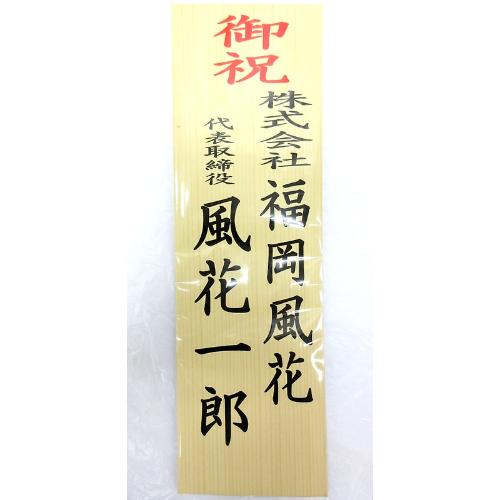 御祝
株式会社福岡風花
代表取締役風花一郎